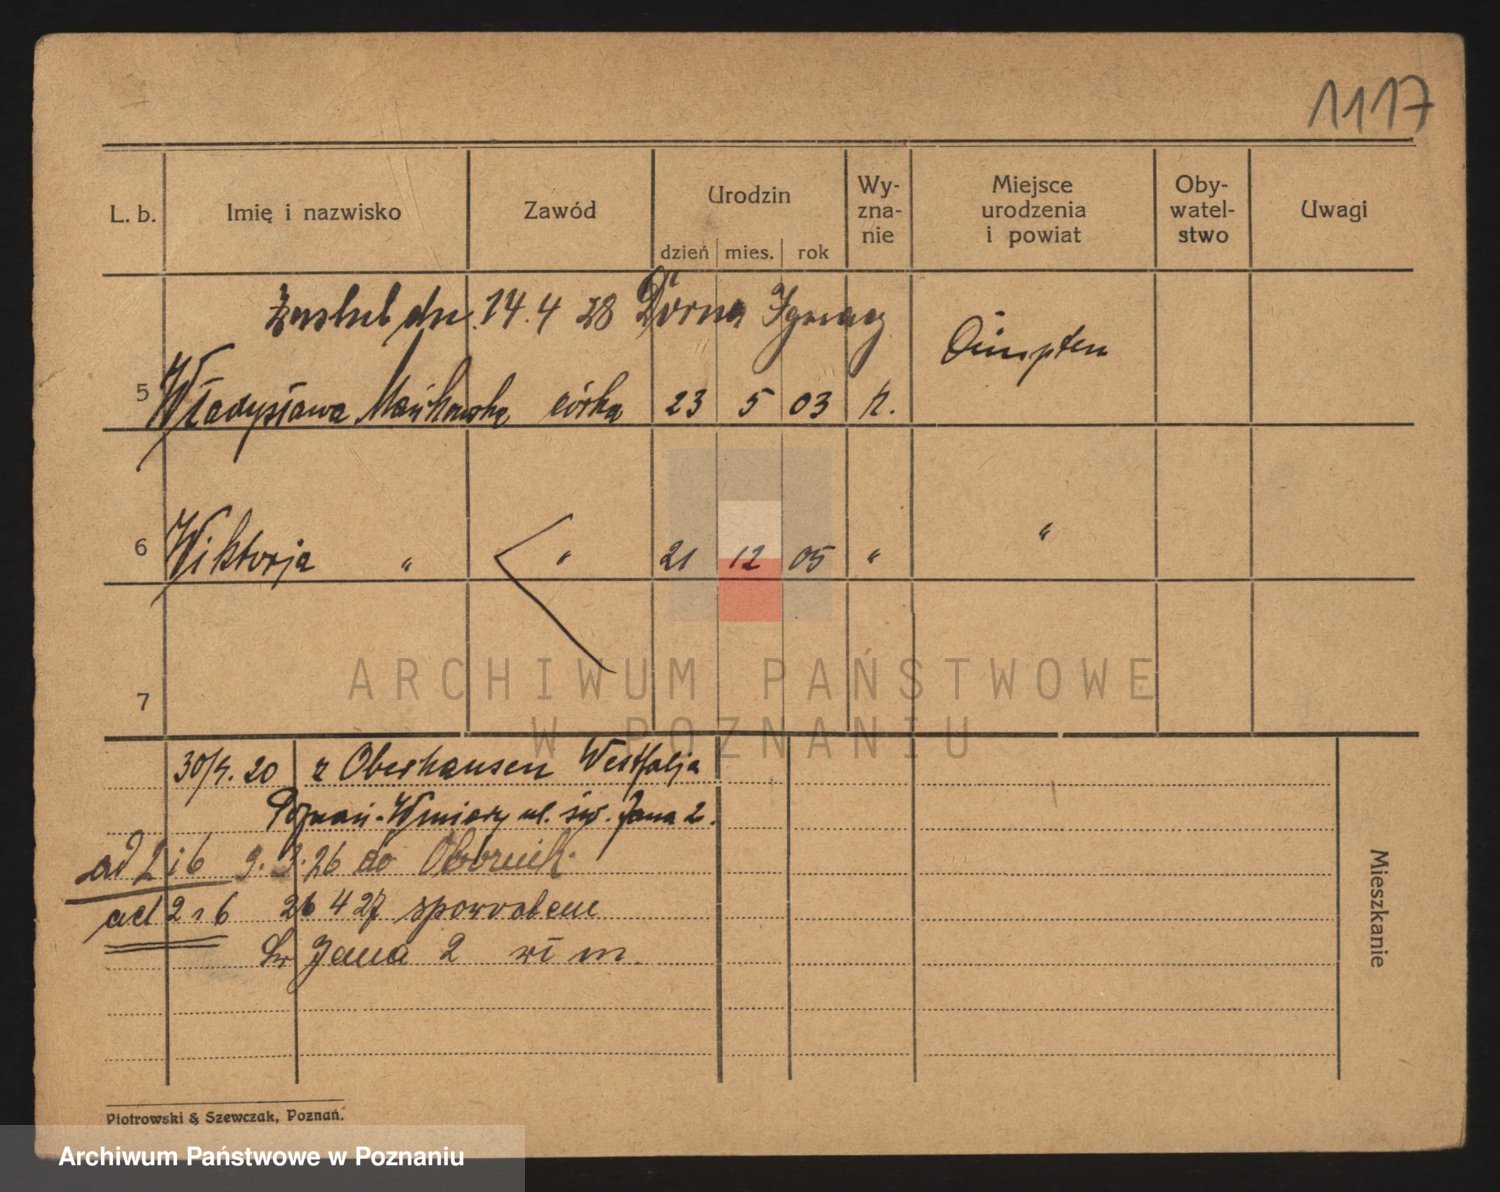 1117
L. b. Imię i nazwisko Zawód Urodzin dzień mies. rok Wy-zna-nie Miejsce urodzenia i powiat Oby-watel-stwo Uwagi
dn. 14.4 28 Dorna Ignacy
5 Władysława Mańkowska córka 23 5 03 k. Dümpten
6 Wiktorja " " 21 12 05 " "
7
ARCHIWUM PAŃSTWOWE
W POZNANIU
20 z Oberhausen Westfalja
Poznań-Winiary ul. św. Jana 2.
ad 2 i 6 9.3.26 do Obornik.
ad 2 i 6 26 4 27 spowrotem
św Jana 2 m.
Mieszkanie
Piotrowski & Szewczak, Poznań.
Archiwum Państwowe w Poznaniu